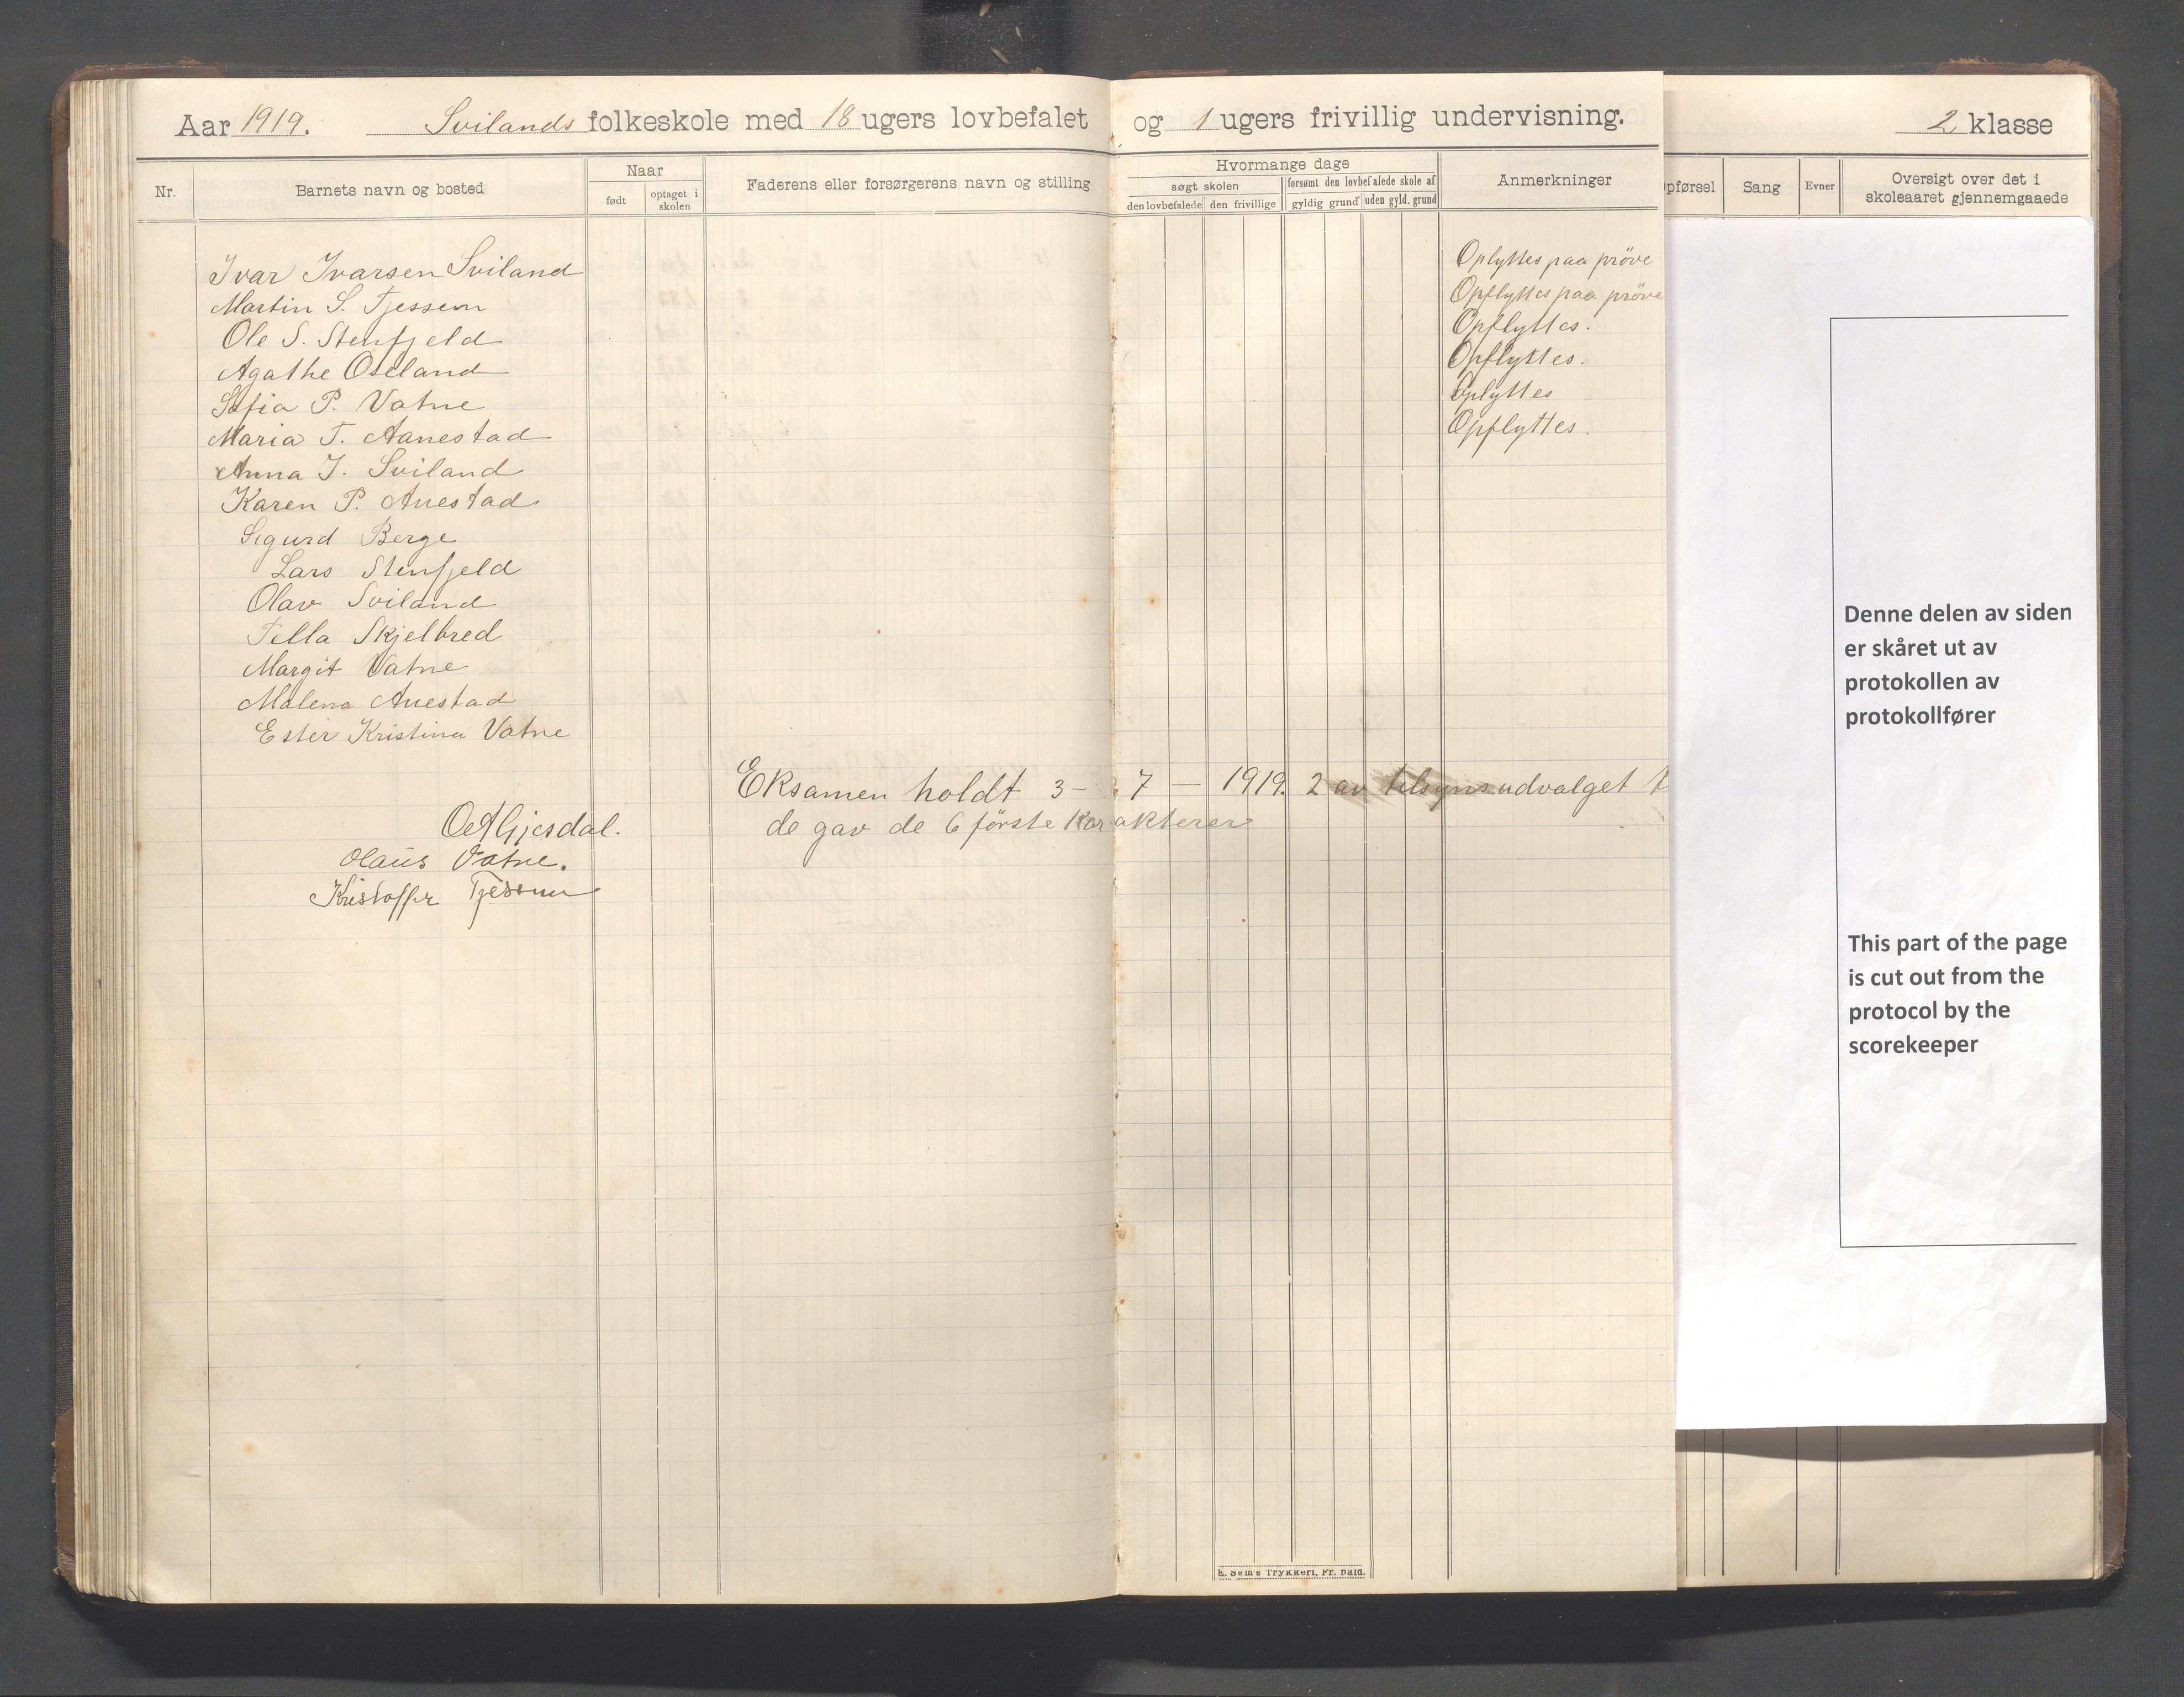 Aar 1919. Svilands folkeskole med 18 ugers lovbefalet og 1 ugers frivillig undervisning. 2 klasse
Nr. Barnets navn og bosted Naar født optaget i skolen Faderens eller forsørgerens navn og stilling Hvormange dage søgt skolen den lovbefalede den frivillige forsømt den lovbefalede skole af gyldig grund uden gyld. grund Anmerkninger pførsel Sang Evner Oversigt over det i skoleaaret gjennemgaaede
Ivar Ivarsen Sviland Oplyttes paa pröve
Martin S. Tjessem Opflyttes paa pröve
Ole S. Stenfjeld Opflyttes.
Agathe Oseland Opflyttes.
Sofia P. Vatne Oplyttes
Maria T. Aanestad Opflyttes.
Anna I. Sviland
Karen P. Auestad
Sigurd Berge
Lars Stenfjeld
Olav Sviland
Tella Skjelbred
Margit Vatne
Malena Auestad
Ester Kristina Vatne
Eksamen holdt 3 - 7 - 1919. 2 av tilsynsudvalget
de gav de 6 förste Karakterer
Gjesdal.
Olaüs Vatne.
Kristoffer Tjessem
E. Sem's Trykkeri, Fr. hald.
Denne delen av siden
er skåret ut av
protokollen av
protokollfører
This part of the page
is cut out from the
protocol by the
scorekeeper